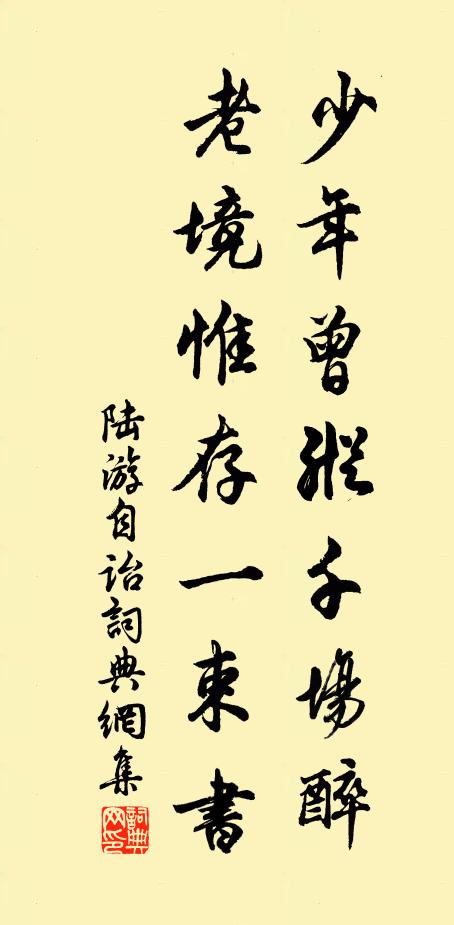 少年曾縱千場醉
老境惟存一束書
陆游自詒詞典網集
詞典網印